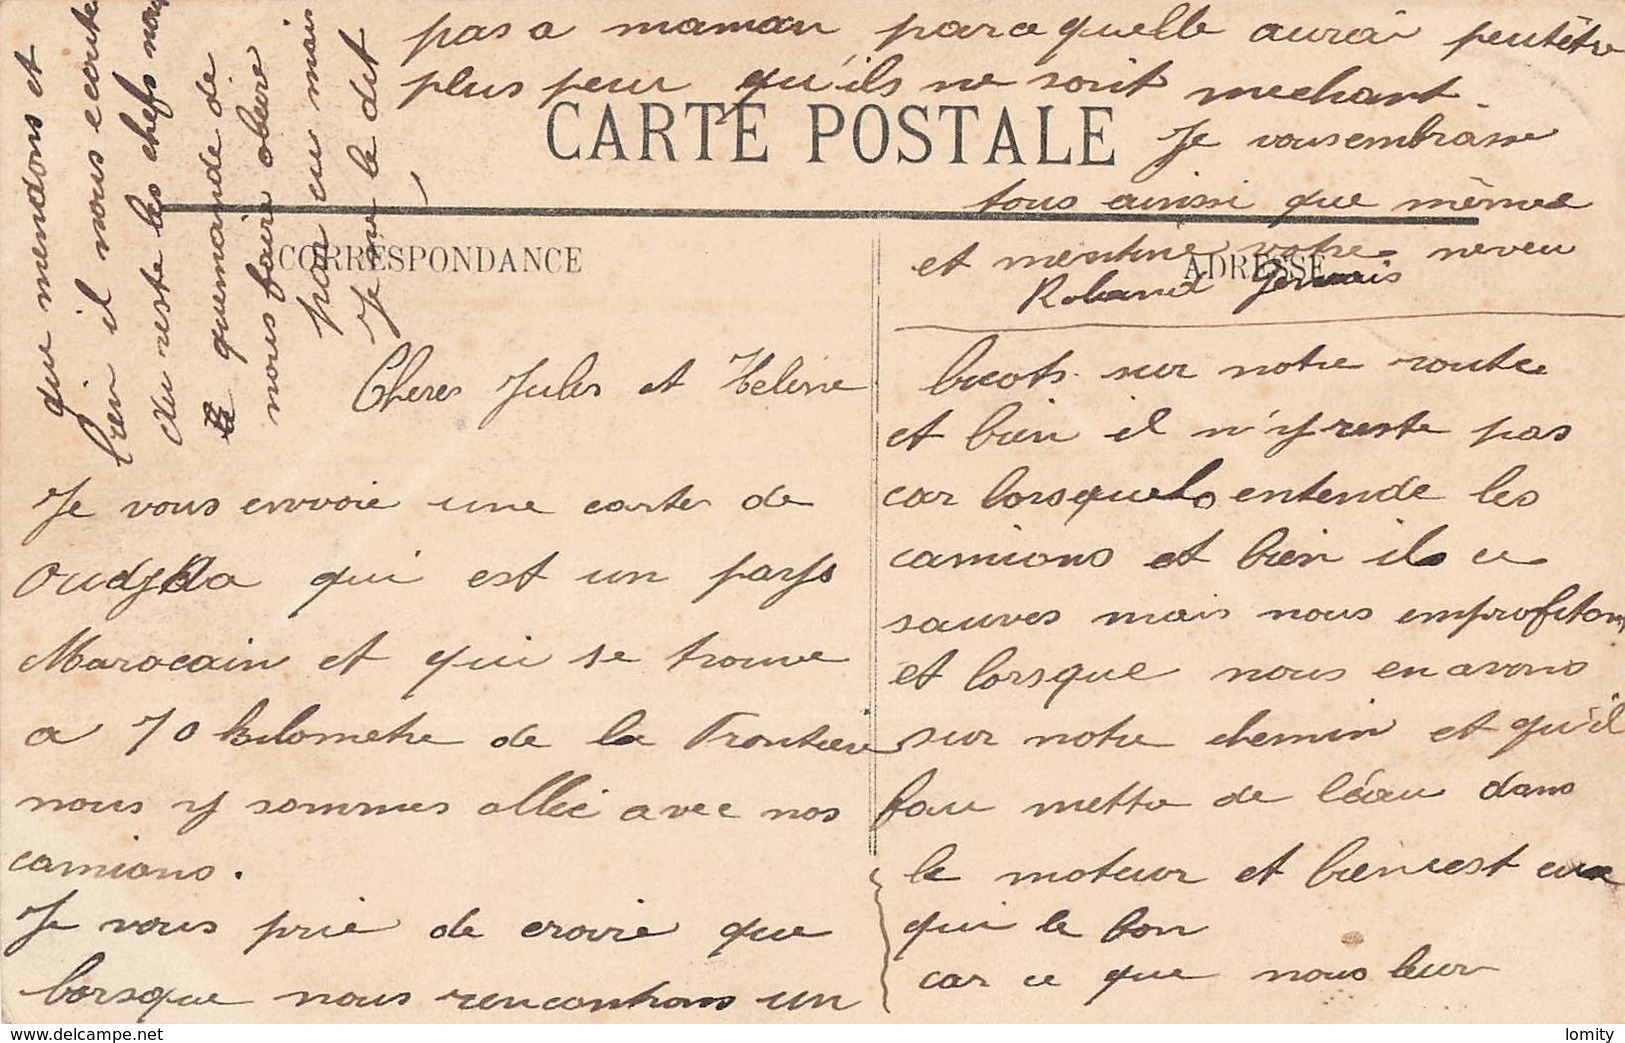 CARTE POSTALE
CORRESPONDANCE
ADRESSE
Cheres Jules et Helene
Je vous envoie une carte de
Oudjda qui est un pays
Marocain et qui se trouve
a 70 kilometre de la Frontiere
nous y sommes allée avec nos
camions.
Je vous prie de croire que
lorsque nous rencontrons un
bicots sur notre route
et bien il n'y reste pas
car lorsquels entende les
camions et bien ils ce
sauves mais nous emprofitons
et lorsque nous en avons
sur notre chemin et qu'il
fau mettre de léau dans
le moteur et bien cest eux
qui le fon
car ce que nous leur
que mendons et
bien il nous ecoute
du reste les chefs nous
quemande de
nous faire obeire
par eu mais
Je ne le dit
pas a maman parcequelle aurai peutêtre
plus peur qu'ils ne soit mechant.
Je vous embrasse
tous ainsi que mémee
et votre neveu
Roland Gervais
lomity
www.delcampe.net